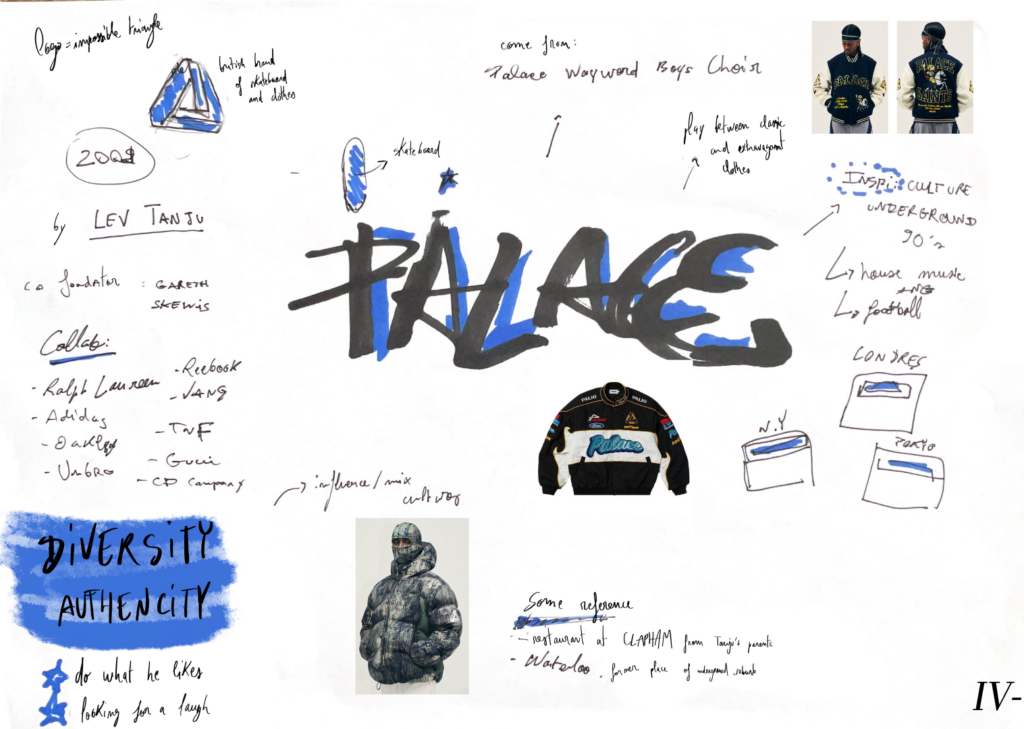 logo = impossible triangle
british brand
of skateboard
and clothes
come from:
Palace Wayword Boys Choir
PALACE
PALACE
SAINTS
play between classic
and extravagant
clothes
2009
skateboard
Inspi: CULTURE
UNDERGROUND
90's
by LEV TANJU
PALACE
house music
football
co fondator : GARETH
SKEWIS
Collab:
- Ralph Laureen
- Adidas
- Oakley
- Umbro
- Reebook
- VANS
- TNF
- Gucci
- CD Company
LONDRES
N.Y
TOKYO
PALIO
PALIO
Ford
Palace
influence/mix
DIVERSITY
AUTHENCITY
do what he likes
looking for a laugh
Some reference
- restaurant at CLAPHAM from Tanju's parents
- Waterloo, former place of
IV-